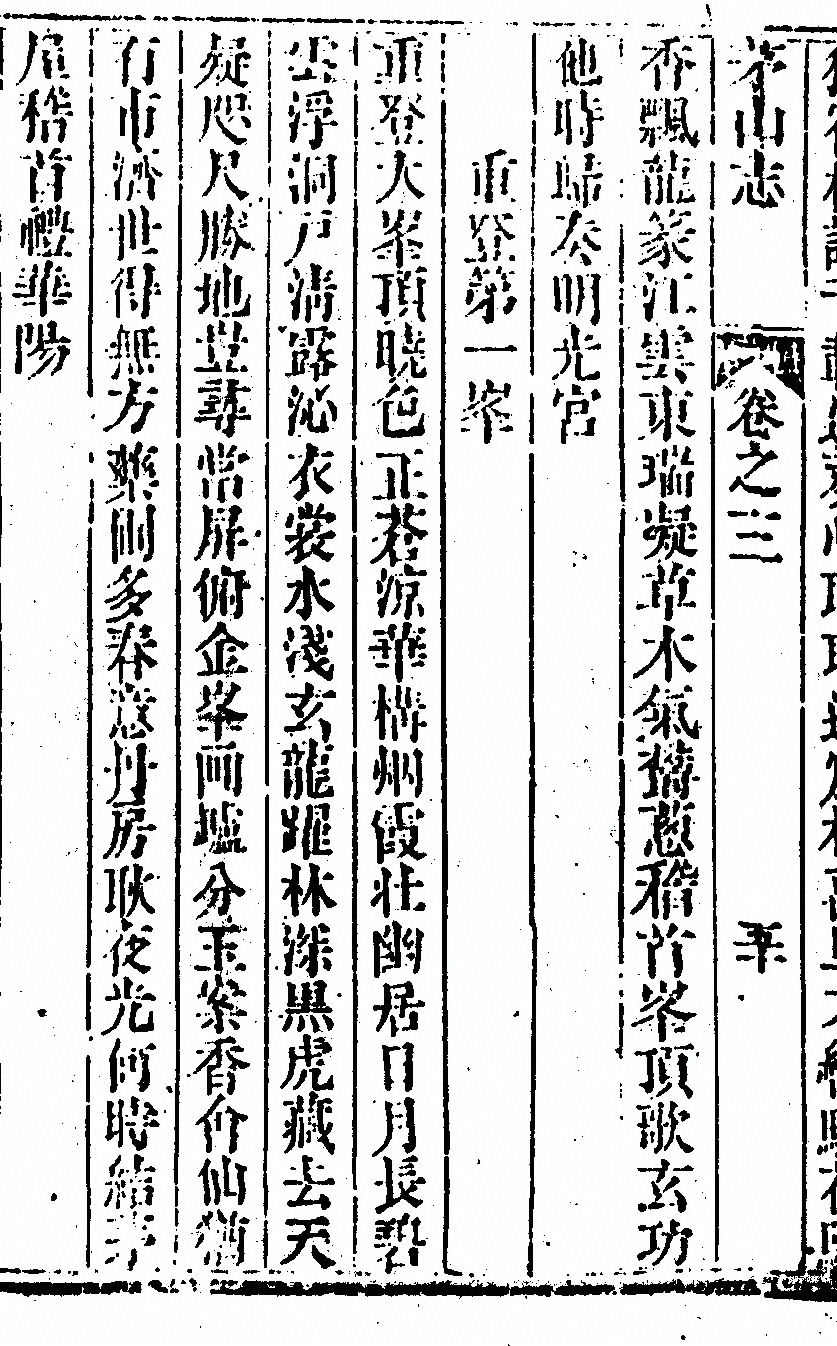 茅山志 卷之三
香飄龍篆江雲東瑞凝草木氣鬱葱稽首峯頂歌玄功
他時歸奏明光宮
重登第一峯
重登大峯頂曉色正蒼涼華構烟霞壯幽居日月長碧
雲浮洞戶清露沁衣裳水淺玄龍躍林深黑虎藏去天
疑咫尺勝地豈尋常屏俯金峯而壚分玉案香介仙猶
有市濟世得無方藥圃多春意丹房耿夜光何時結茅
屋稽首禮華陽